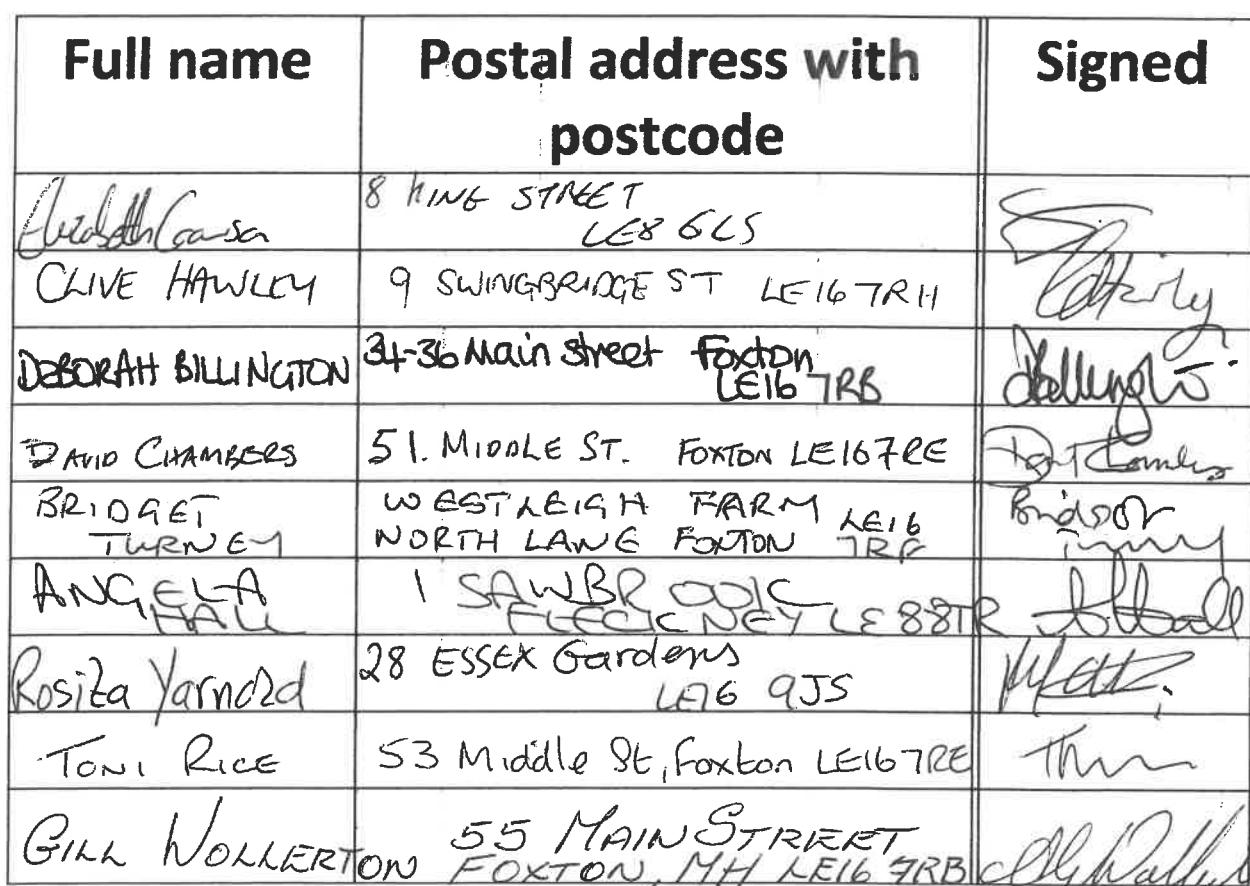 Full name Postal address with postcode Signed
Elizabeth 8 KING STREET
LE8 6LS
CLIVE HAWLEY 9 SWINGBRIDGE ST LE16 7RH
DEBORAH BILLINGTON 34-36 Main Street Foxton
LE16 7RB
DAVID CHAMBERS 51. MIDDLE ST. FOXTON LE16 7RE
BRIDGET WESTLEIGH FARM LE16
TURNEY NORTH LANE FOXTON 7RF
ANGELA 1 SAWBROOK
HALL FLECKNEY LE8 8TR
Rosita Yarnold 28 ESSEX Gardens
LE16 9JS
TONI RICE 53 Middle St, Foxton LE16 7RE
GILL WOLLERTON 55 MAIN STREET
FOXTON, MH LE16 7RB